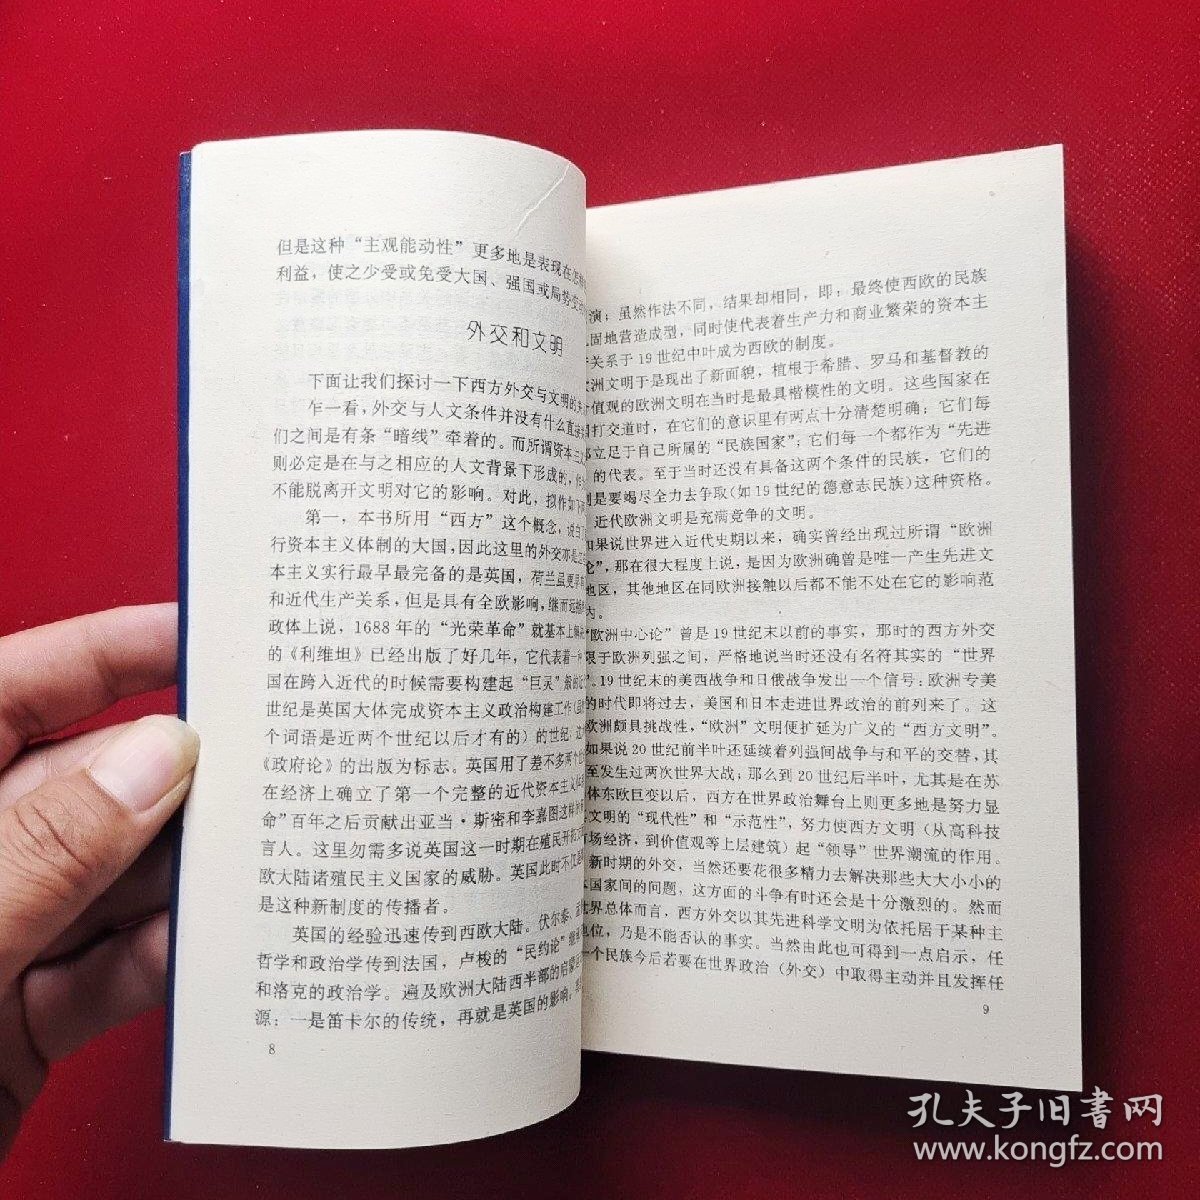 但是这种“主观能动性”更多地是表现在怎样
利益，使之少受或免受大国、强国或局势变
外交和文明
下面让我们探讨一下西方外交与文明的
乍一看，外交与人文条件并没有什么直接
们之间是有条“暗线”牵着的。而所谓资本主义
则必定是在与之相应的人文背景下形成的，
不能脱离开文明对它的影响。对此，拟作如下
第一，本书所用“西方”这个概念，说白了
行资本主义体制的大国，因此这里的外交亦是
本主义实行最早最完备的是英国，荷兰虽更早
和近代生产关系，但是具有全欧影响，继而远
政体上说，1688年的“光荣革命”就基本上
的《利维坦》已经出版了好几年，它代表着一种
国在跨入近代的时候需要构建起“巨灵”般的
世纪是英国大体完成资本主义政治构建工作（
个词语是近两个世纪以后才有的）的世纪：
《政府论》的出版为标志。英国用了差不多两个
在经济上确立了第一个完整的近代资本主义
命”百年之后贡献出亚当·斯密和李嘉图这样的
言人。这里勿需多说英国这一时期在殖民开拓
欧大陆诸殖民主义国家的威胁。英国此时不仅
是这种新制度的传播者。
英国的经验迅速传到西欧大陆。伏尔泰、
哲学和政治学传到法国，卢梭的“民约论”继
和洛克的政治学。遍及欧洲大陆西半部的启蒙
源：一是笛卡尔的传统，再就是英国的影响。
8
演；虽然作法不同，结果却相同，即：最终使西欧的民族
固地营造成型，同时使代表着生产力和商业繁荣的资本主
关系于19世纪中叶成为西欧的制度。
欧洲文明于是现出了新面貌，植根于希腊、罗马和基督教的
价值观的欧洲文明在当时是最具楷模性的文明。这些国家在
打交道时，在它们的意识里有两点十分清楚明确：它们每
都立足于自己所属的“民族国家”；它们每一个都作为“先进
的代表。至于当时还没有具备这两个条件的民族，它们的
则是要竭尽全力去争取（如19世纪的德意志民族）这种资格。
近代欧洲文明是充满竞争的文明。
如果说世界进入近代史期以来，确实曾经出现过所谓“欧洲
论”，那在很大程度上说，是因为欧洲确曾是唯一产生先进文
地区，其他地区在同欧洲接触以后都不能不处在它的影响范
内。
“欧洲中心论”曾是19世纪末以前的事实，那时的西方外交
限于欧洲列强之间，严格地说当时还没有名符其实的“世界
”。19世纪末的美西战争和日俄战争发出一个信号：欧洲专美
的时代即将过去，美国和日本走进世界政治的前列来了。这
欧洲颇具挑战性，“欧洲”文明便扩延为广义的“西方文明”。
如果说20世纪前半叶还延续着列强间战争与和平的交替，其
至发生过两次世界大战；那么到20世纪后半叶，尤其是在苏
体东欧巨变以后，西方在世界政治舞台上则更多地是努力显
文明的“现代性”和“示范性”，努力使西方文明（从高科技
场经济，到价值观等上层建筑）起“领导”世界潮流的作用。
新时期的外交，当然还要花很多精力去解决那些大大小小的
国家间的问题，这方面的斗争有时还会是十分激烈的。然而
世界总体而言，西方外交以其先进科学文明为依托居于某种主
地位，乃是不能否认的事实。当然由此也可得到一点启示，任
一个民族今后若要在世界政治（外交）中取得主动并且发挥任
9
孔夫子旧書网
www.kongfz.com